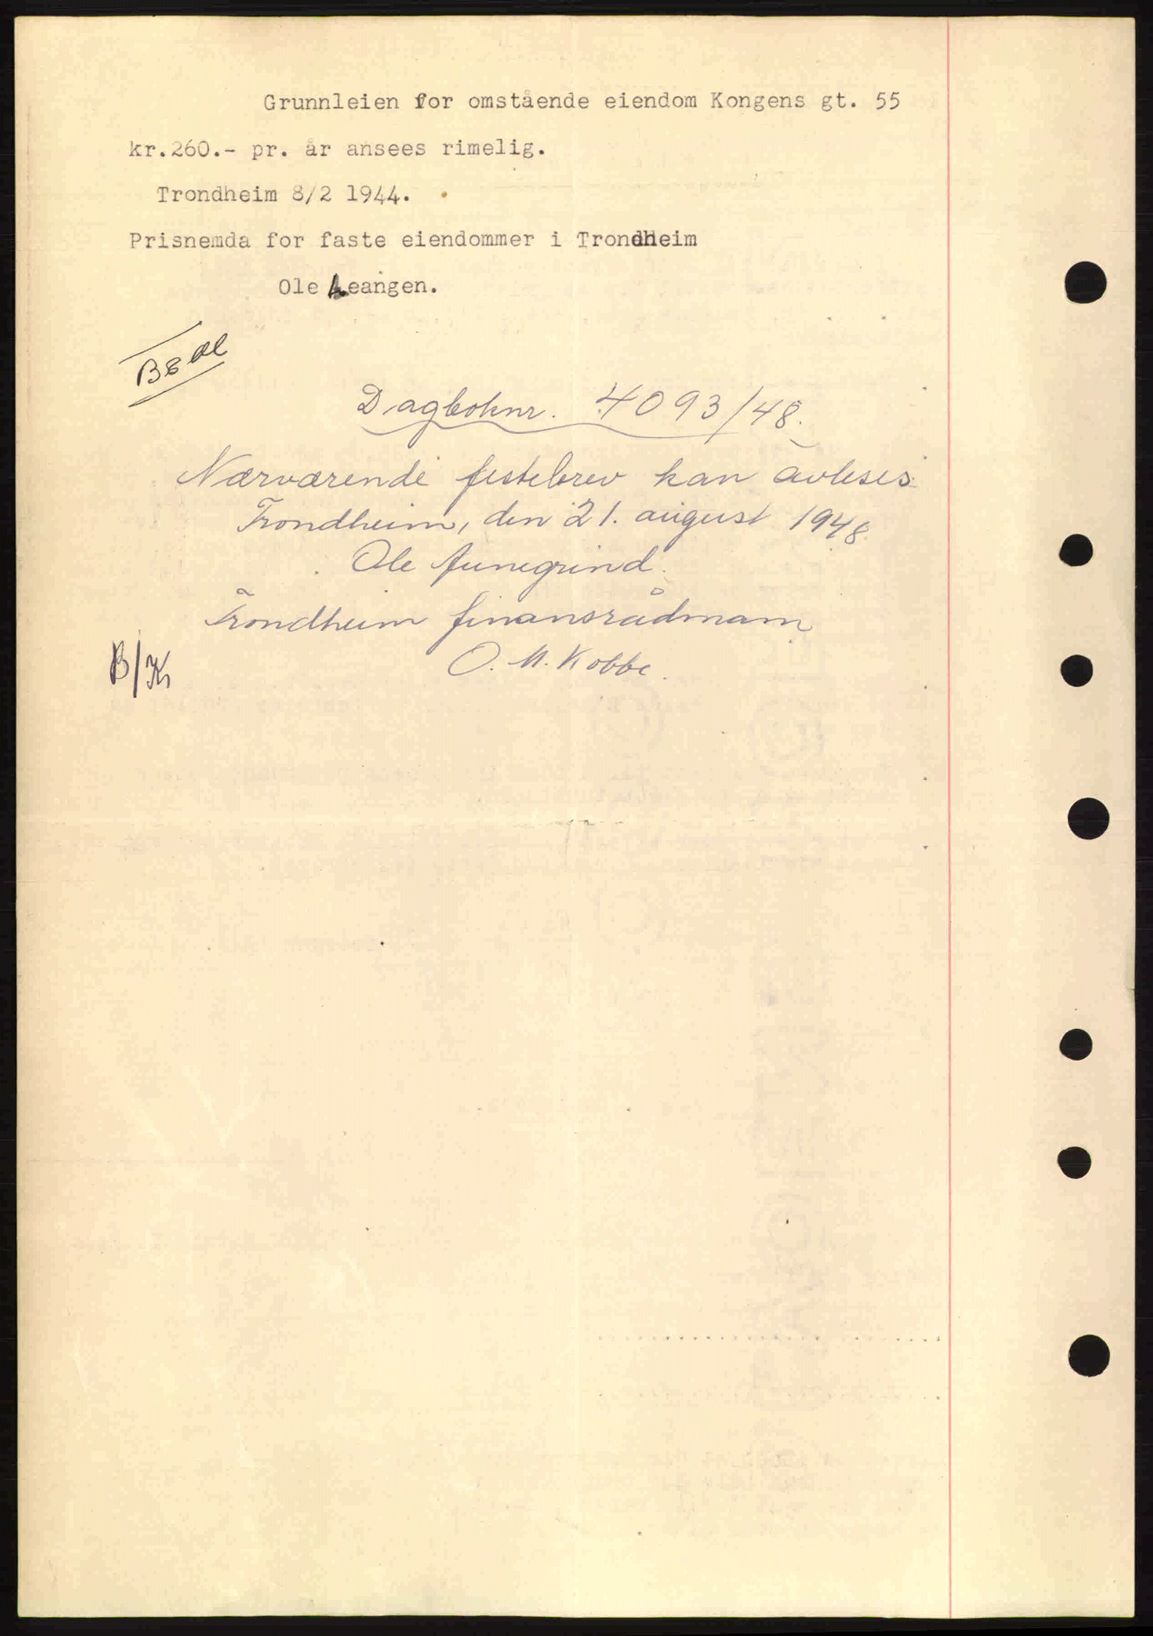 Grunnleien for omstående eiendom Kongens gt. 55
kr.260.- pr. år ansees rimelig.
Trondheim 8/2 1944.
Prisnemda for faste eiendommer i Trondheim
Ole Leangen.
Dagboknr. 4093/48.
Nærværende festebrev kan avleses
Trondheim, den 21. august 1948
Ole Aunegrind.
Trondheim finansrådmann
O. M. Kobbe.
B/K